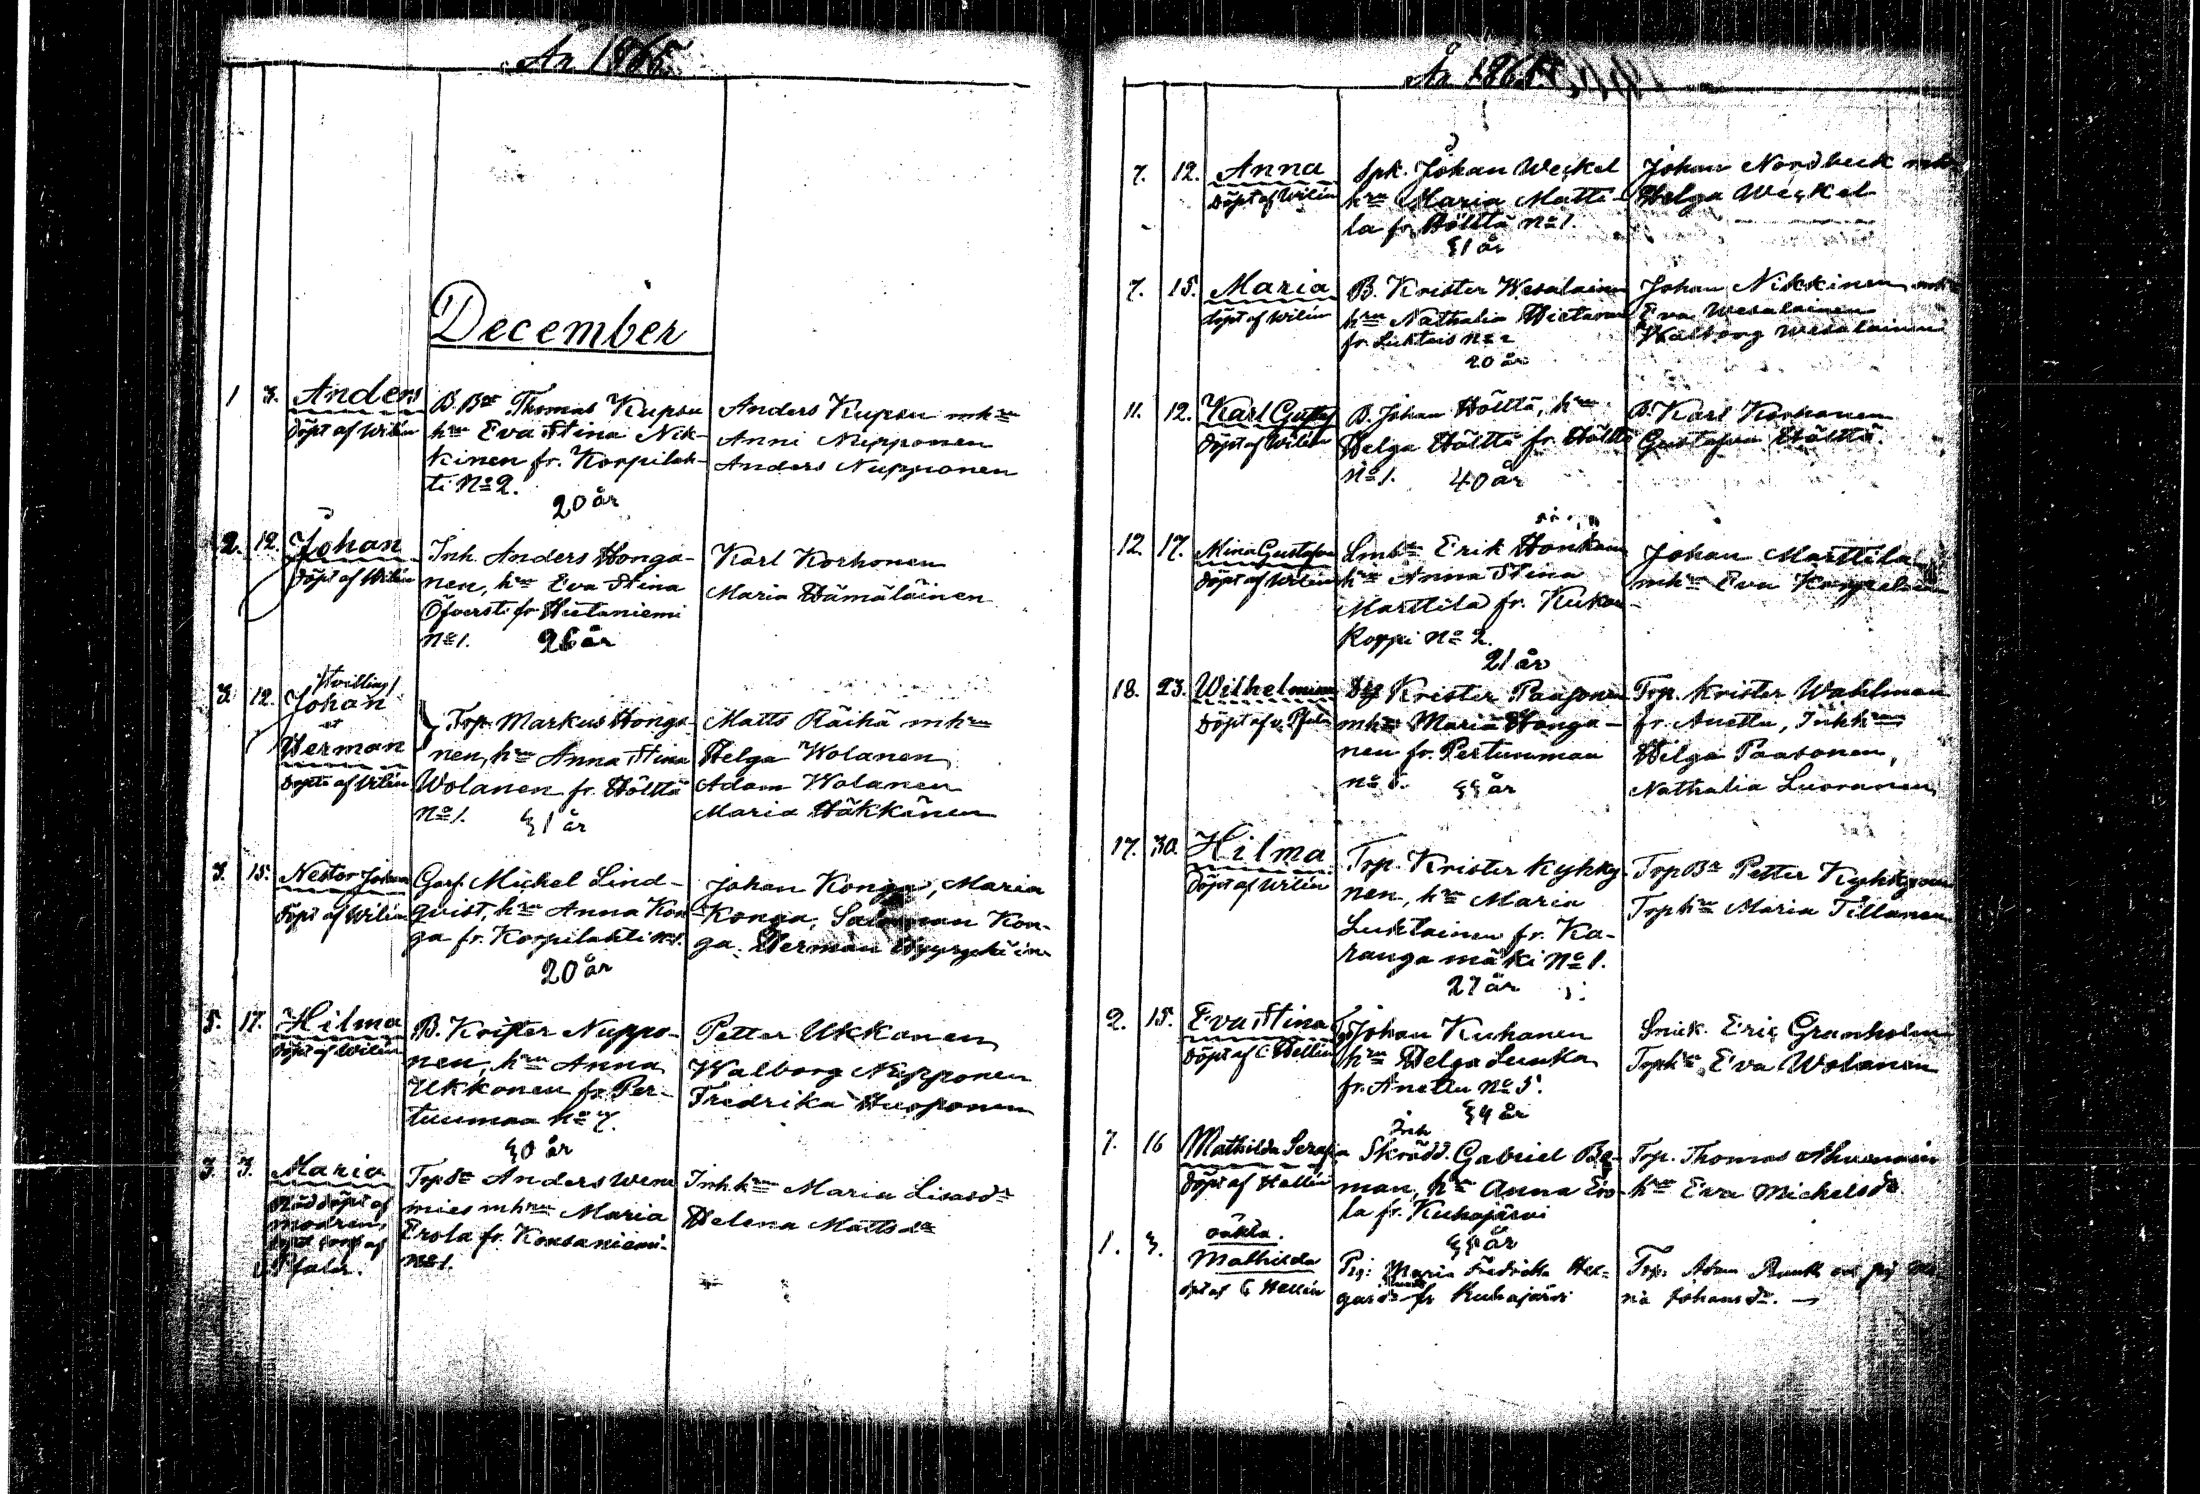 År 1865.
December
1 3. Anders
döpt af Wilén
B. Br Thomas Kupsu
hru Eva Stina Nik-
kinen fr. Korpilah-
ti No 2.
20 år
Anders Kupsu mhru
Anni Nupponen
Anders Nupponen
2. 12. Johan
döpt af Wilén
Inh. Anders Honga-
nen, hru Eva Stina
Öfverst. fr. Hietaniemi
No 1. 26 år
Karl Korhonen
Maria Hämäläinen
3. 12. (tvilling)
Johan
et
Herman
döpta af Wilén
Trp. Markus Honga-
nen, hru Anna Stina
Wolanen fr. Hölttä
No 1. 31 år
Matts Räihä mhru
Helga Wolanen
Adam Wolanen
Maria Häkkänen
3. 15. Nestor Johan
döpt af Wilén
Garf. Michel Lind-
qvist, hru Anna Kon-
ga fr. Korpilahti No 1.
20 år
Johan Konga, Maria
Konga, Salomon Kon-
ga. Herman
5. 17. Hilma
döpt af Wilén
B. Krister Nuppo-
nen, hru Anna
Ukkonen fr. Per-
tunmaa No 7.
30 år
Petter Ukkonen
Walborg Nupponen
Fredrika Nupponen
3. 3. Maria
Nöddöpt af
modren,
af
v. Pfaler.
Trp Sn Anders Wene
mies mhru Maria
Erola fr. Konsaniemi
No 1.
Inh.hru Maria Lisasdr
Helena Mattsdr
År 1865
7. 12. Anna
döpt af Wilén
Spk. Johan Weckel
hru Maria Matti-
la fr. Hölttä No 1.
31 år
Johan Nordbeck mhru
Helga Weckel
7. 15. Maria
döpt af Wilén
B. Krister Wesalainen
hru Nathalia Hietanen
fr. No 2
20 år
Johan Nikkinen mhru
Eva Wesalainen
Walborg Wesalainen
11. 12. Karl Gustaf
döpt af Wilén
B. Johan Hölttä, hru
Helga Hölttä fr. Hölttä
No 1. 40 år
B. Karl Korhonen
Gustafva Hölttä.
12. 17. Mina Gustafva
döpt af Wilén
Lmbr Erik Honkanen
hru Anna Stina
Marttila fr. Kukon-
koppi No 2.
21 år
Johan Marttila
mhru Eva
18. 23. Wilhelmina
döpt af v. Pfaler
Krister Paasonen
mhru Maria Honga-
nen fr. Pertunmaa
No 5. 33 år
Trp. Krister Wahlman
fr. Anettu, Inhhru
Helga Paasonen,
Nathalia Luoranen
17. 30. Hilma
döpt af Wilén
Trp. Krister Kyhky-
nen, hru Maria
Luktainen fr. Ka-
rangamäki No 1.
27 år
Trp Br Petter Kyhkynen
Trphru Maria Tillanen
2. 15. Eva Stina
döpt af C Hellén
Trp Johan Kuhanen
hru Helga Luukka
fr. Anettu No 5.
34 år
Snick. Eric Granholm
Trphru Eva Wolanen
7. 16 Mathilda Serafia
döpt af Hellén
Inh
Skrädd. Gabriel Be-
man, hru Anna Ero-
la fr. Kuhajärvi
33 år
Trp. Thomas Ahvenainen
hru Eva Michelsdr
1. 3. oäkta.
Mathilda
dpt af C Hellén
Pig: Maria Fredrika Hen-
fr Kuhajärvi
Trp. Adam och pig Ma-
ria Johansdr. —